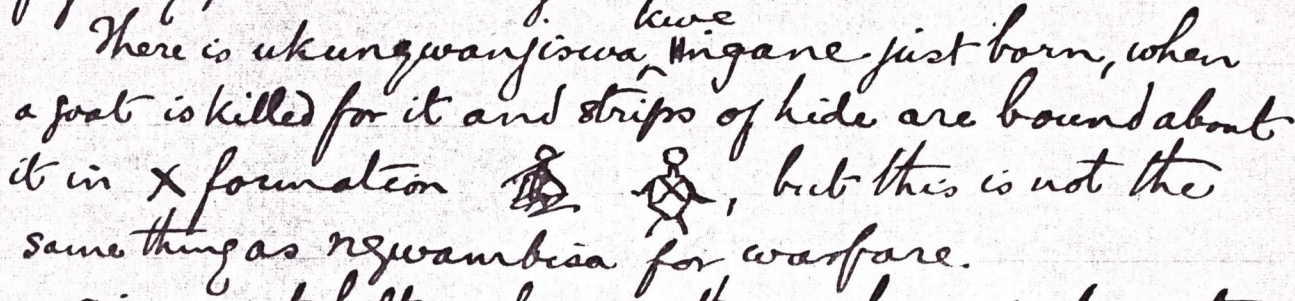 kwe
There is ukungwanjiswa ^ ingane just born, when
a goat is killed for it and strips of hide are bound about
it in X formation , but this is not the
same thing as ngwambisa for warfare.